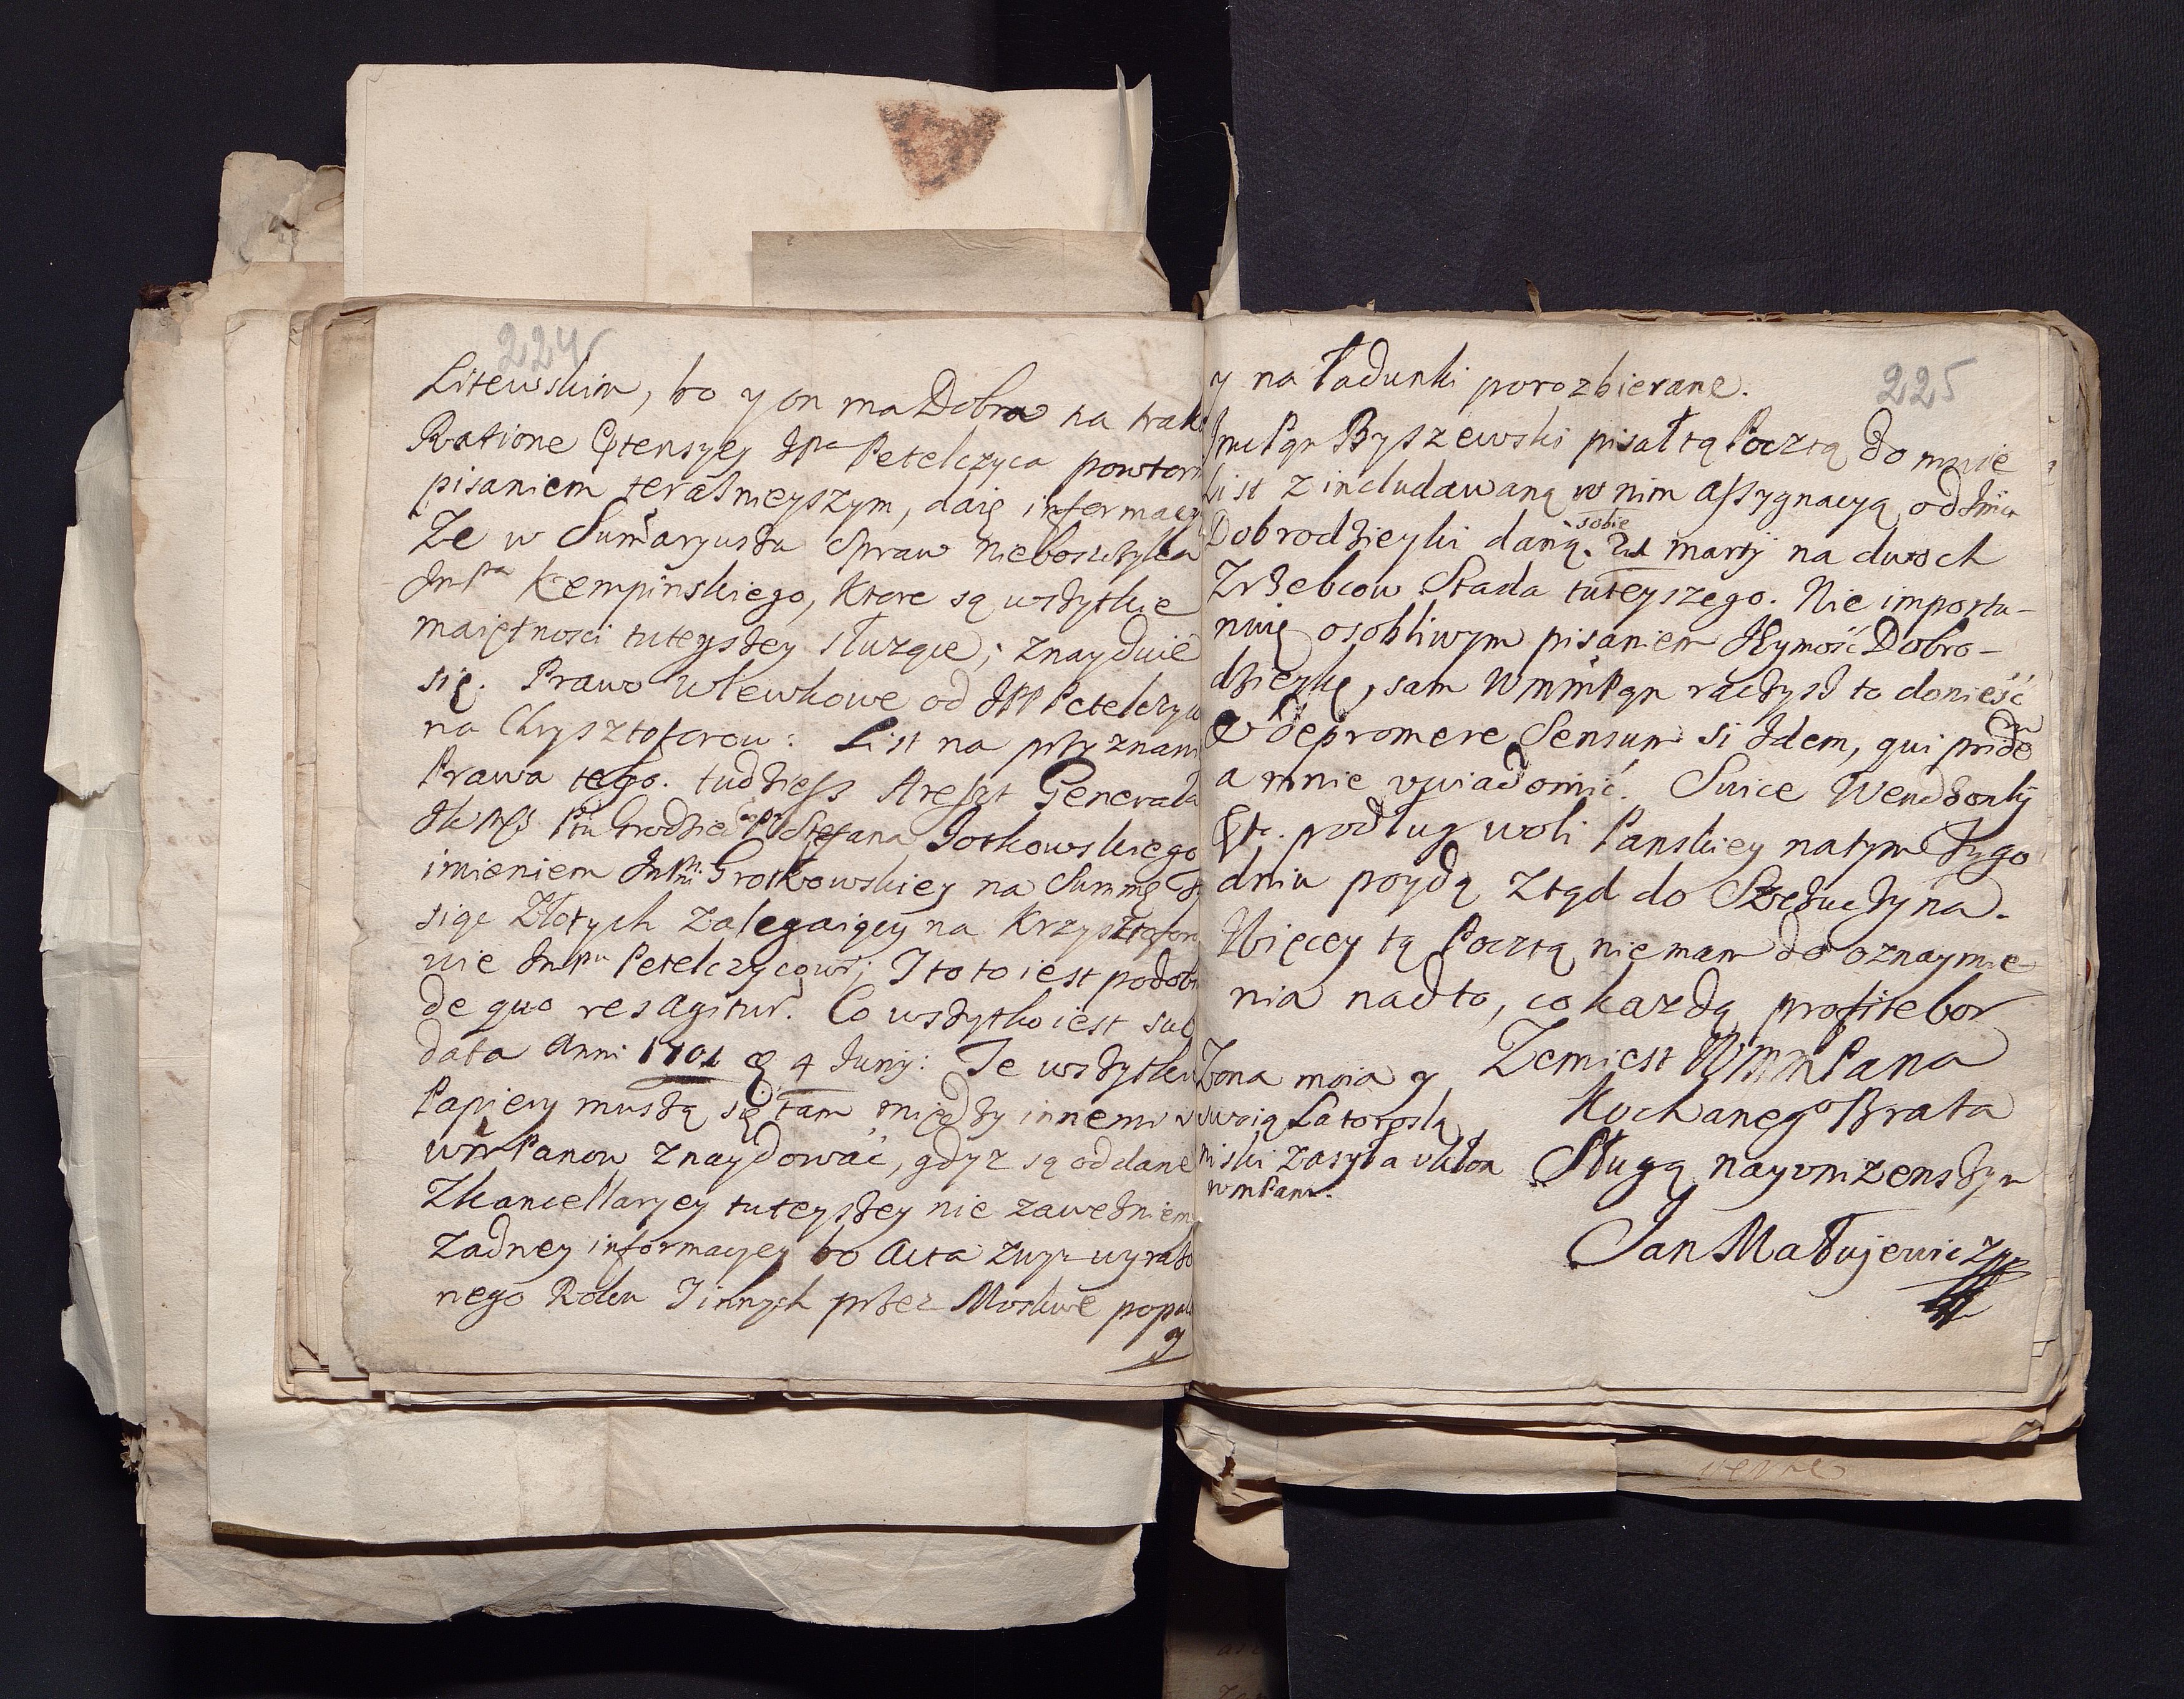 224
Litewskim, bo y on ma Dobra na trak
Ratione Ptensyey JPa Petelczyca powtor
pisaniem teraśnieyszym, daię informacy
Że w Summaryuszu Spraw nieboszczyka
JmPa Kempinskiego, Ktore są wszytkie
maiętnosci tuteyszey służące; znayduie
się. Prawo wlewkowe od JPP Petelczyc
na Chrysztoforow: List na przyznani
Prawa tego. tudziesz Areszt Generala
Stefana Jotkowskiego
imieniem Grotkowskiey na Summę
siąc Złotych Zalegaiącą na Krzysztofor
wie JmPu Petelczycowi; I to to iest podob
de quo res agitur. Co wszytko iest sub
data Anni 1701 4 Juny: Te wszytkie
Papiery muszą się tam między innemi
WmPanow znaydować, gdyz są oddane
Z Kancellaryey tuteyszey nie zawezniem
Zadney informacyey bo Acta zwyz wyrażo
nego Roku I innych przez Moskwe popal
y
225
y na ładunki porozbierane.
JmcPan Byszewski pisał tą Pocztą do mnie
List z includowaną w nim assygnacyą od
Dobrodzieyki daną sobie 2da martij na dwoch
Zrzebcow Stada tuteyszego. Nie importu-
nuię osobliwym pisaniem Jeymość Dobro-
dzieykę, sam WMMPan raczysz to donieść
& depromere Sensum si Idem, qui pride
a mnie uwiadomić. Swice Wendzonki
podług woli Panskiey na tym Tygo
dniu poydą ztąd do Szczuczyna.
Więcey tą Pocztą nie mam do oznaymie
nia nadto, co kazdą profitebor
Żem iest WMMPana
Kochanego Brata
Sługą nayunizenszym
Jan Matujewicz
Zona moia y
swoią Latoroslą
niski zasyła ukłon
WmPanu.